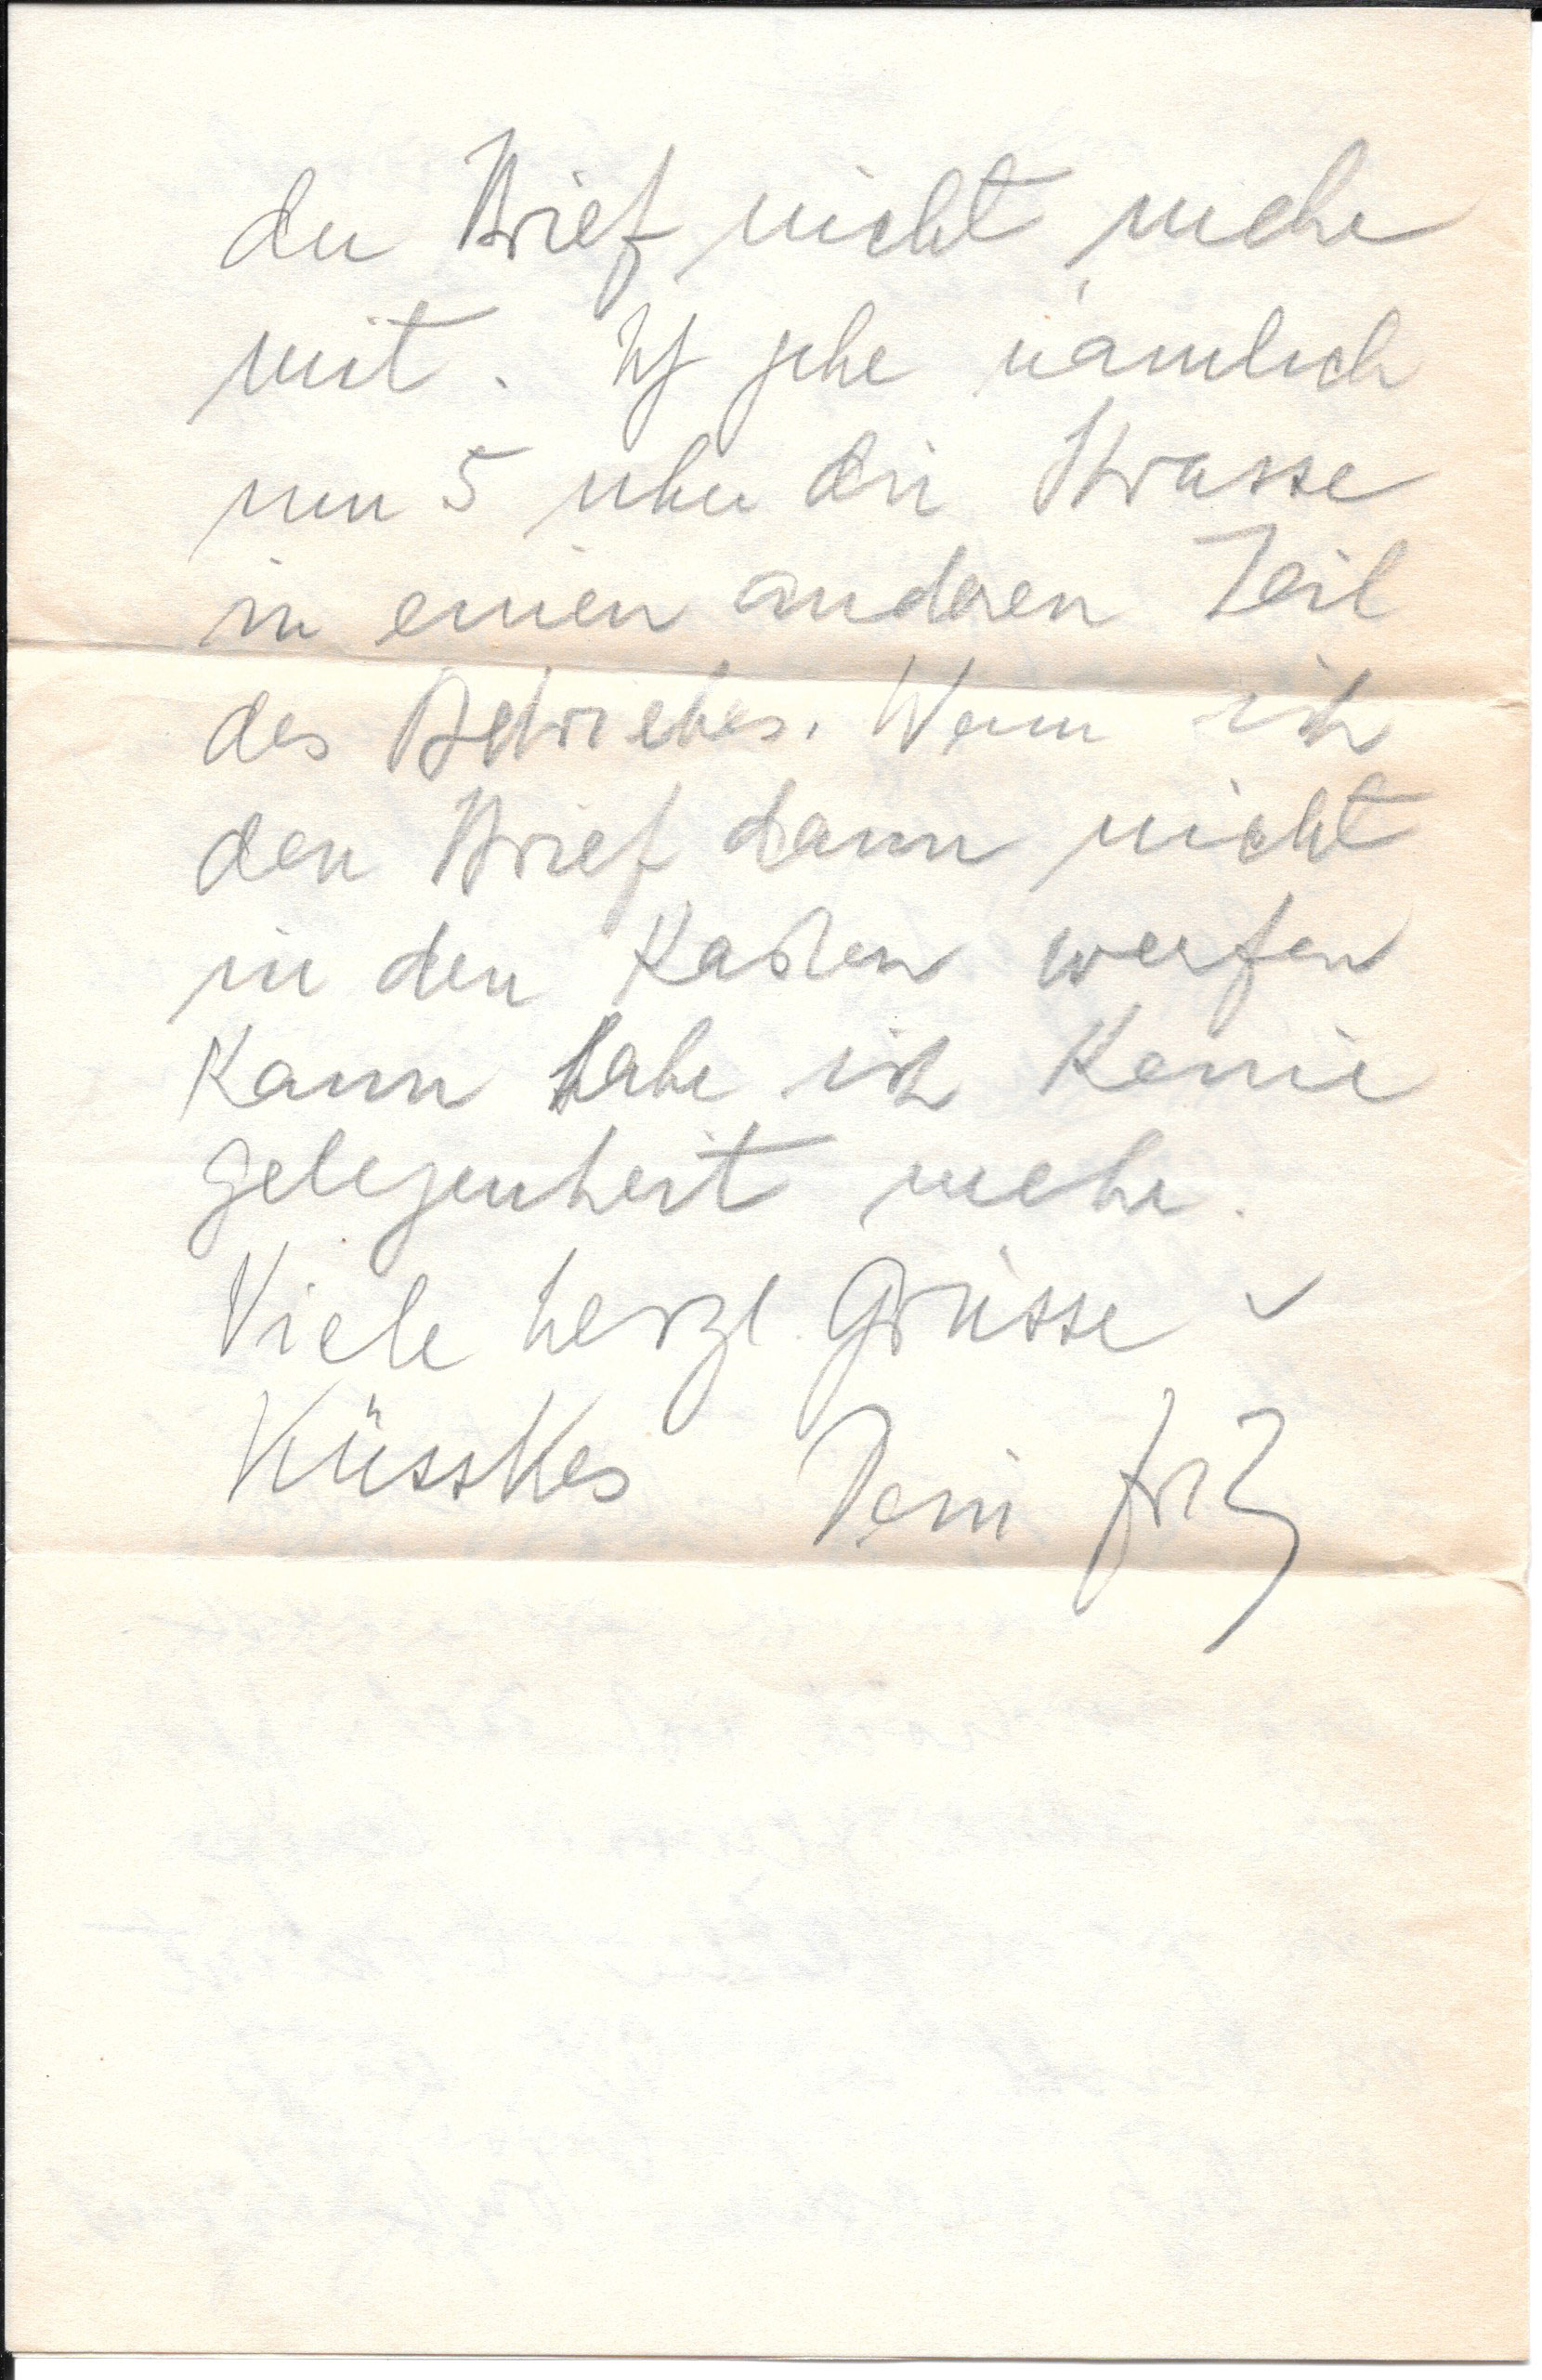 der Brief nicht mehr
mit. Ich gehe nämlich
um 5 uhr die Strasse
in einen anderen Teil
des Betriebes. Wenn ich
den Brief dann nicht
in den Kasten werfen
Kann habe ich Keine
gelegenheit mehr.
Viele herzl. Grüsse u
Küsskes Dein Fritz